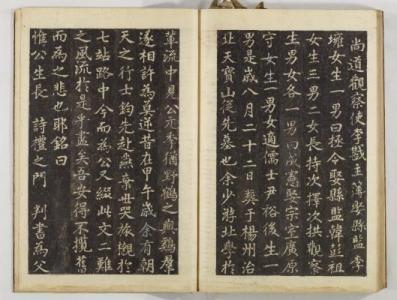 尚道觀察使李戭主簿娶縣監李
女生一男曰拯今娶縣監韓彭祖
女生三男二女長持次擇次拱觀察
生男女各一男曰成憲娶宗室廣原
守女生一男女適儒士尹裕後生一
男是歲八月二十二日葬于楊州治
北天寶山從先墓也余少游北學於
輩流中見公示季猶野鶴之鷄羣
遂相許為莫逆昔在甲午歲余有朝
天之行士鈞走赴燕哭旅櫬於
七站路中今而為公又綴此文二難
之風流於是乎盡矣吾安得不攬舊
而為之悲也耶銘曰
惟公生長 詩禮之門 判書為父